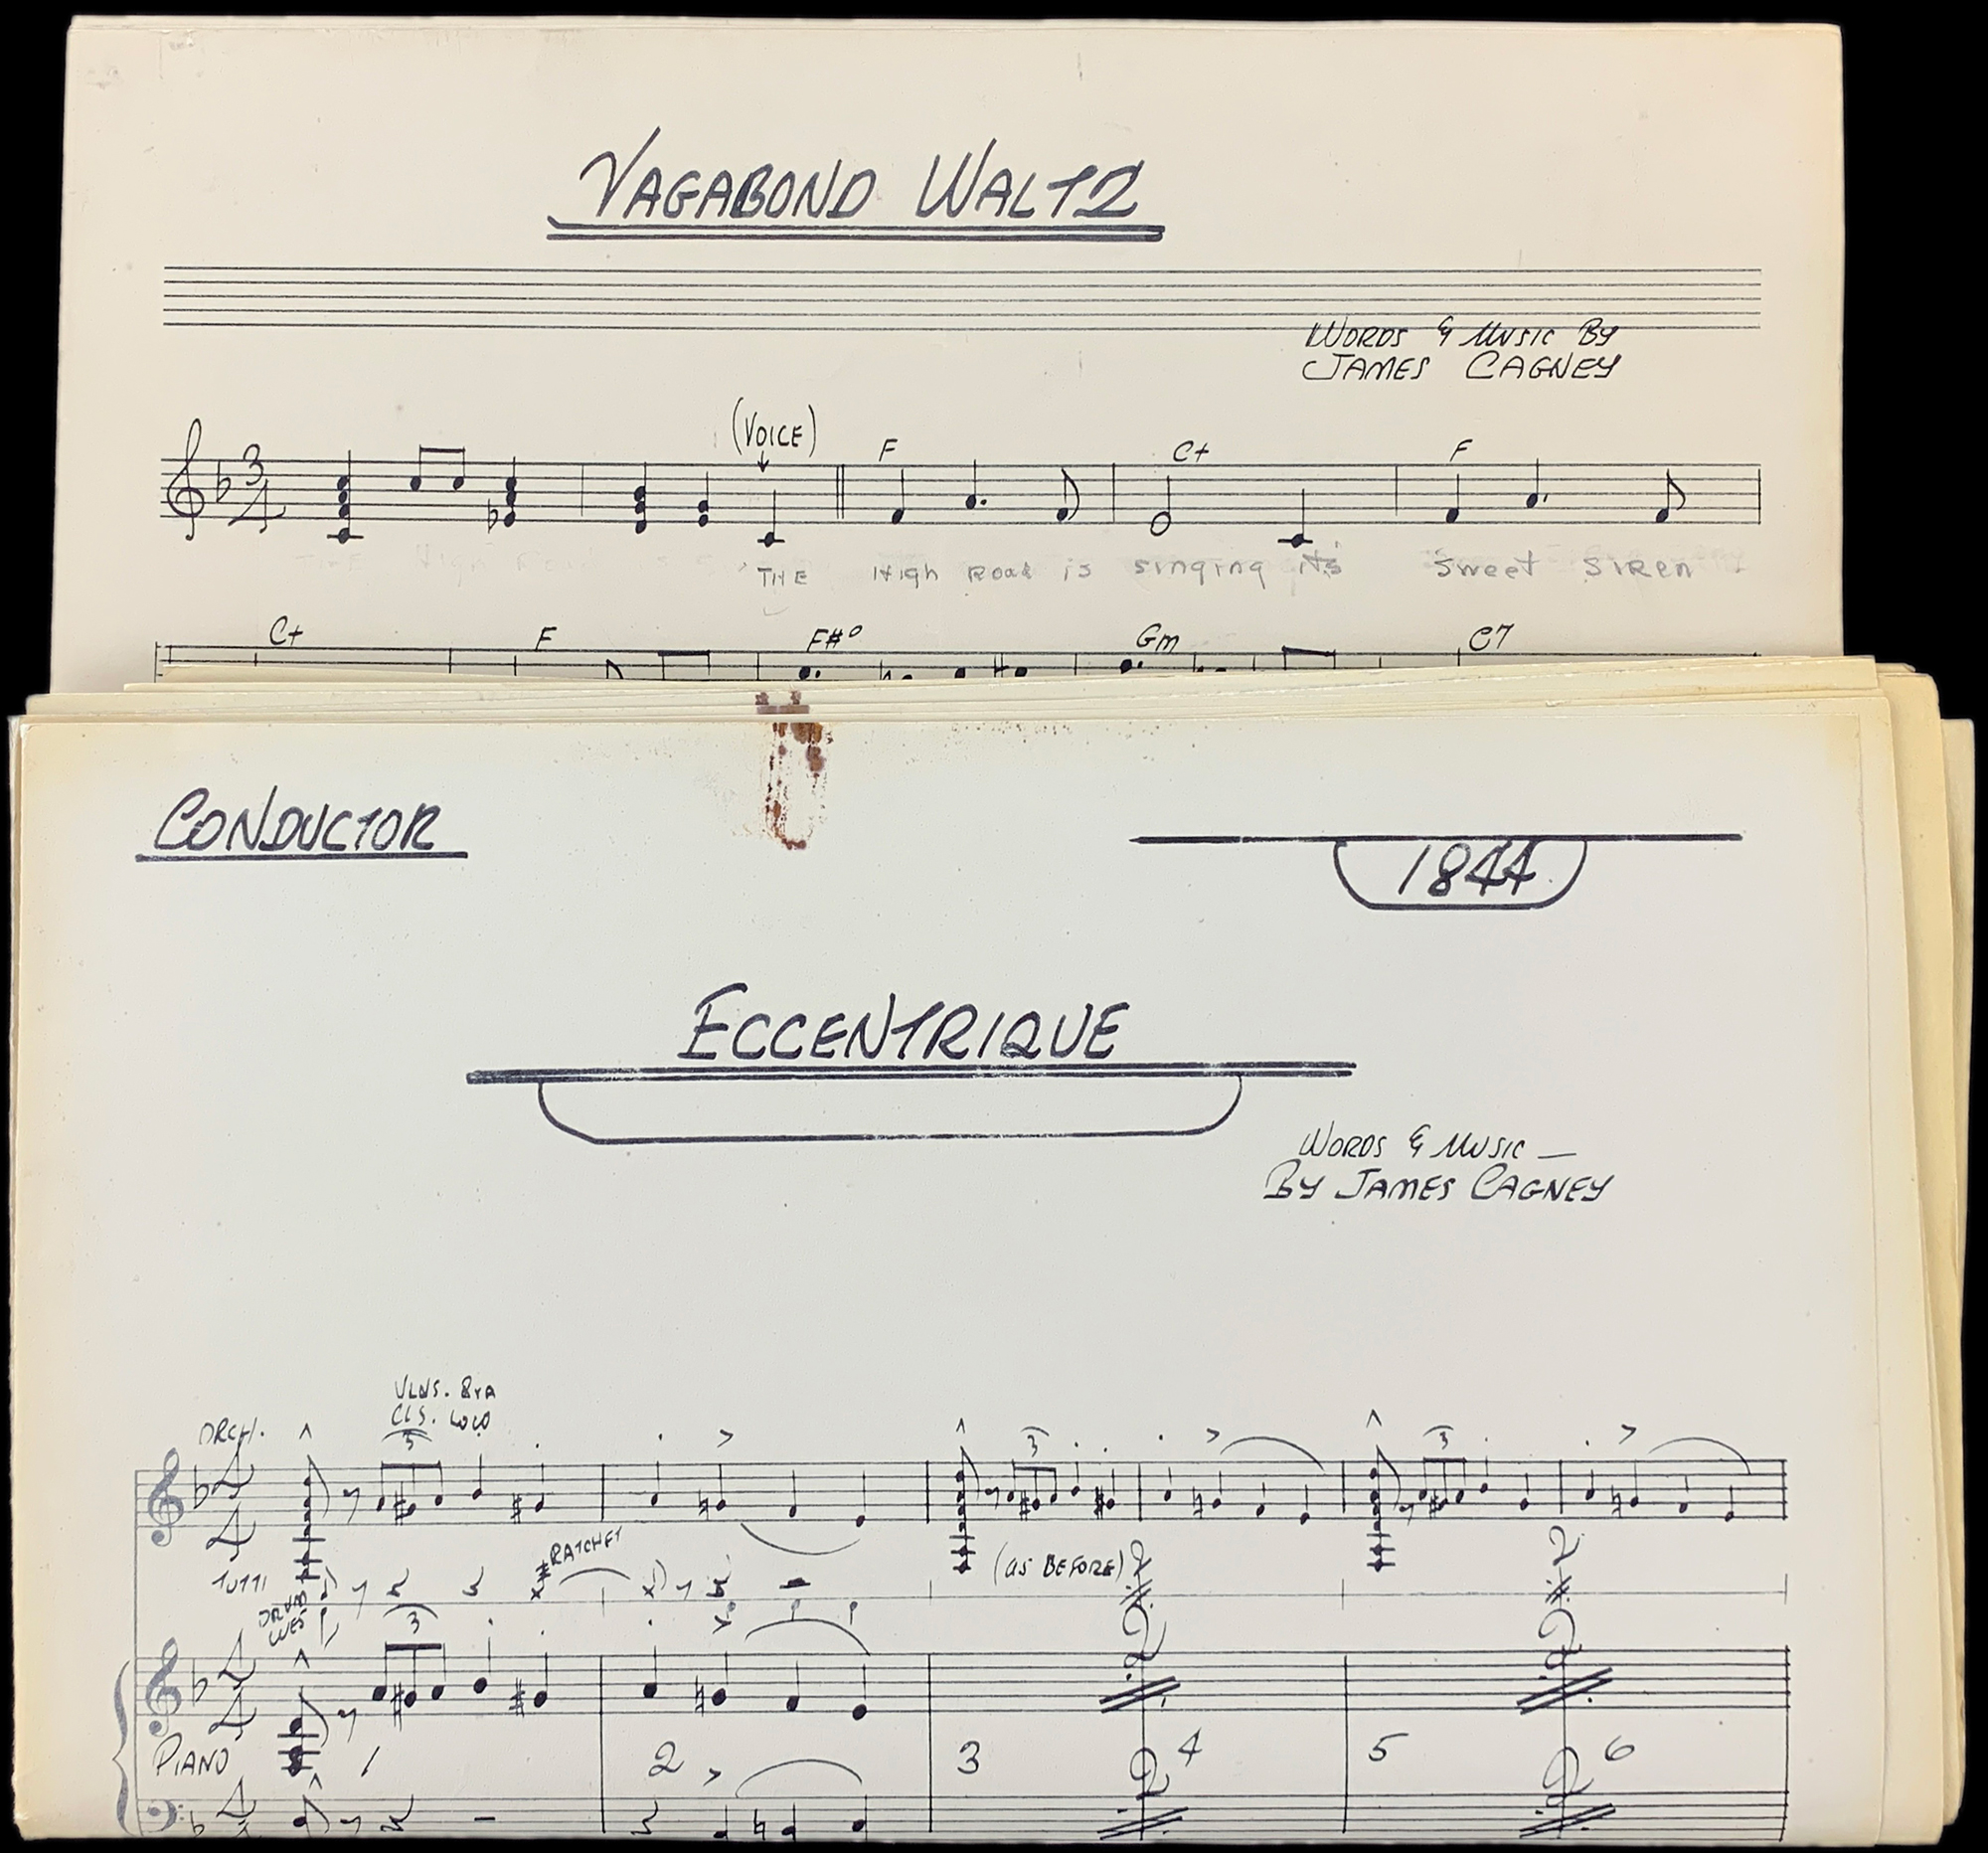 VAGABOND WALTZ
WORDS & MUSIC BY
JAMES CAGNEY
(VOICE)
F C+ F
3
4
THE High Road is singing its Sweet SIREN
C+ F F#° Gm C7
CONDUCTOR
1844
ECCENTRIQUE
WORDS & MUSIC —
BY JAMES CAGNEY
VLNS. 8va
CLS. LOCO
ORCH.
3 3 3
4
4
RATCHET
TUTTI
(AS BEFORE) 2 2
DRUM
3
4
4
2 2
PIANO 1 2 3 4 5 6
2 2
4